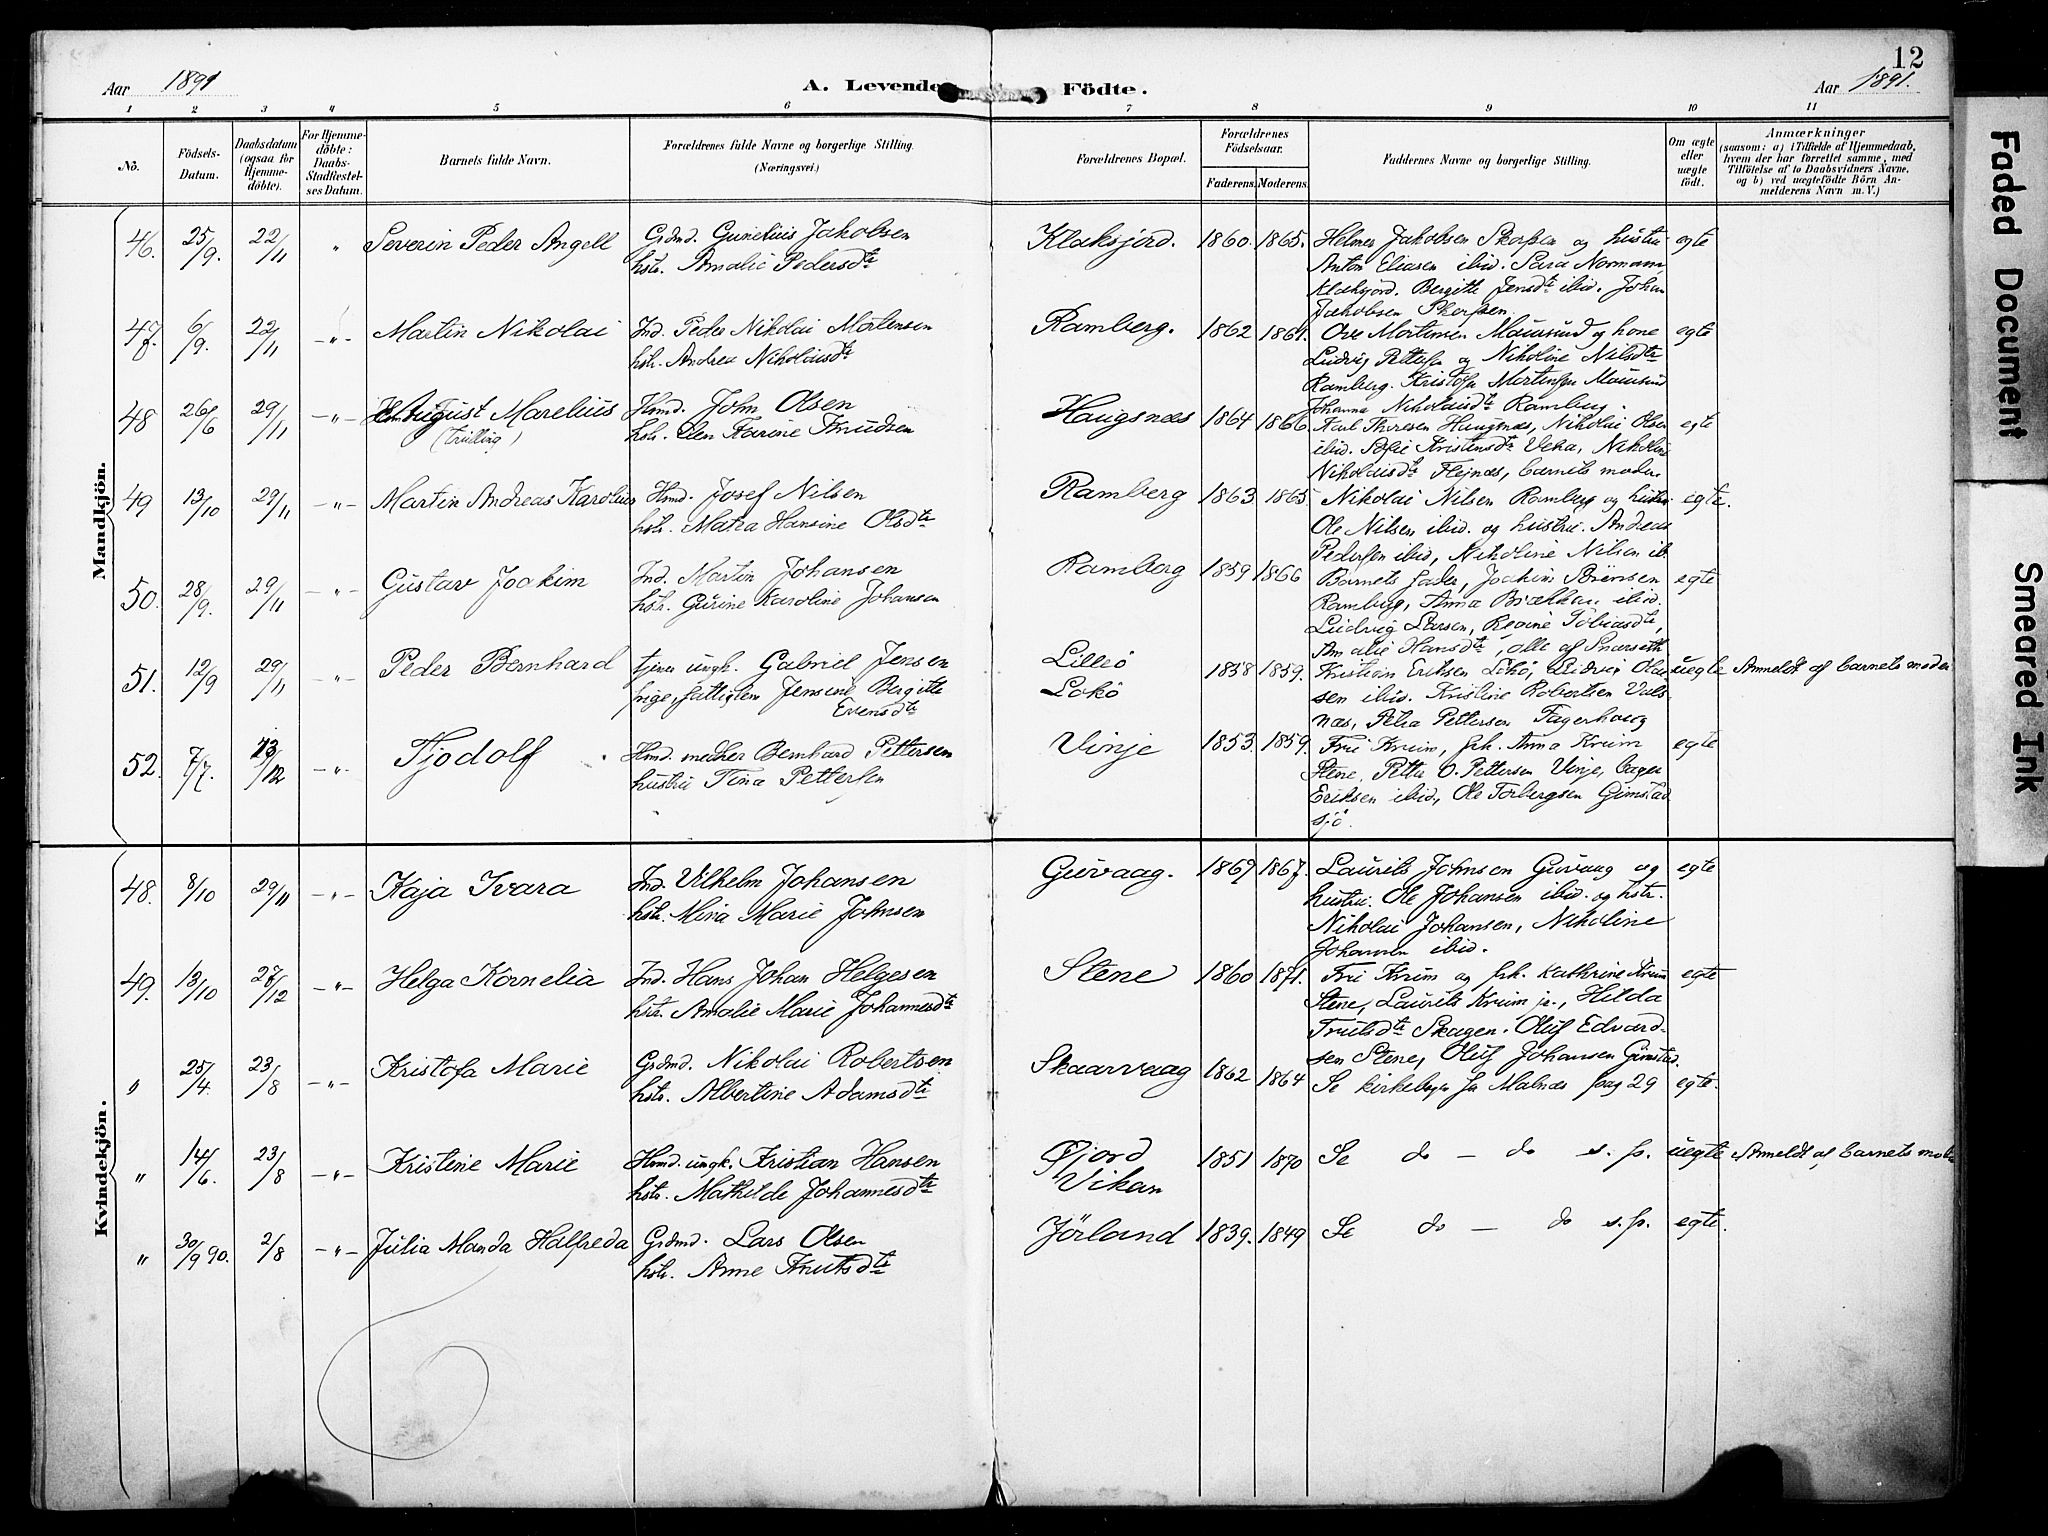 12
Aar 1891
A. Levende Födte.
Aar 1891.
1 2 3 4 5 6 7 8 9 10 11
Nô.
Födsels-Datum.
Daabsdatum (ogsaa for Hjemme-döbte).
For Hjemme-döbte: Daabs-Stadfæstelses Datum.
Barnets fulde Navn.
Forældrenes fulde Navne og borgerlige Stilling.
(Næringsvei.)
Forældrenes Bopæl.
Forældrenes Födselsaar.
Faderens. Moderens.
Faddernes Navne og borgerlige Stilling.
Om ægte eller uægte födt.
Anmærkninger
(saasom: a) i Tilfælde af Hjemmedaab, hvem der har forrettet samme, med Tilföielse af to Daabsvidners Navne, og b) ved uægtefödte Börn Anmelderens Navn m. V.)
Mandkjön.
46. 25/9. 22/11 " Severin Peder Angell Grdmd. Gunelius Jakobsen Klaksjord. 1860. 1865. Helmer Jakobsen Skorpen og hustru egte
hstr. Amalie Pedersdtr Anton Eliasen ibid. Sara Normann
Klaksjord. Bergitte Jensdtr ibid. Johan
Jakobsen Skorpen.
47. 6/9. 22/11 -"- Martin Nikolai Ind. Peder Nikolai Mortensen Ramberg. 1862 1861. Ove Mortensen Maursund og kone egte
hstr. Andrea Nikolaisdtr Ludvig Petters og Nikoline Nilsdtr
Ramberg. Kristofer Mortensen Maursund
Johanna Nikolaisdtr Ramberg.
48 26/6 29/11 -"- August Marelius Hmd. John Olsen Haugsnæs 1864 1866 Karl Thoresen Haugsnæs, Nikolai Olsen egte
(trilling) hstr. Elen Karine Knudsen ibid. Sofie Kristensdtr Veka, Nikoline
Nikolaisdtr Flejnæs, barnets moder.
49 13/10 29/11 -"- Martin Andreas Karolius Hmd. Josef Nilsen Ramberg 1863 1865 Nikolai Nilsen Ramberg og hustru egte.
hstr. Matea Hansine Olsdtr Ole Nilsen ibid. og hustru. Andreas
Pedersen ibid, Nikoline Nilsen ib.
50. 28/9. 29/11 -"- Gustav Joakim Ind. Martin Johansen Ramberg 1859 1866 Barnets fader, Joakim Sörensen egte
hstr. Gurine Karoline Johansen Ramberg, Anna Brækkan ibid.
Ludvig Larsen, Regine Tobiasdtr,
Amalie Hansdtr, alle af
51. 12/9 29/11 -"- Peder Bernhard tjener ungk. Gabriel Jensen Lilleö 1858 1859. Kristian Eriksen Lokö, Ludvig Olau- uegte Anmeldt af barnets moder
pige, fattiglem Jensine Birgitte Lokö sen ibid. Kristine Robertsen Vals-
Evensdtr næs, Petra Pettersen Fagerhaug
52. 7/7. 13/12 -"- Tjodolf Hmd. medhr Bernhard Pettersen Vinje 1853. 1859. Fru Krum, frk. Anna Krum egte
hustru Tina Pettersen Stene, Petter O. Pettersen Vinje, bager
Eriksen ibid, Ole Torbergsen Gimstad
sjö.
Kvindekjön.
48. 8/10 29/11 -"- Kaja Ivara Ind. Vilhelm Johansen Guvaag. 1869 1867. Laurits Johnsen Guvaag og egte
hstr. Mina Marie Johnsen hustru. Ole Johansen ibid. og hstr.
Nikolai Johansen, Nikoline
Johansen ibid.
49. 13/10 27/12 -"- Helga Kornelia Ind. Hans Johan Helgesen Stene 1860 1871. Fru Krum og frk. Kathrine Krum egte
hstr. Amalie Marie Johannesdtr Stene, Laurits Krum jr., Hilda
Trulsdtr Skagen. Oluf Edvard-
sen Stene, Oluf Johansen Gimstad.
" 25/4. 23/8 -"- Kristofa Marie Grdmd. Nikolai Robertsen Skaarvaag 1862 1864 Se kirkebogen fr Malnæs pag 29 egte.
hstr. Albertine Adamsdtr
" 14/6. 23/8 -"- Kristine Marie Hmd. ungk. Kristian Hansen Öjord 1851 1870 Se do - do s. p. uegte Anmeldt af barnets moder
hstr. Mathilde Johannesdtr Vikan
" 30/9 90. 2/8 -"- Julia Manda Halfreda Grdmd. Lars Olsen Jörland 1839. 1849 Se do - do s. p. egte.
hstr. Anne Knutsdtr
Faded Document
Smeared Ink